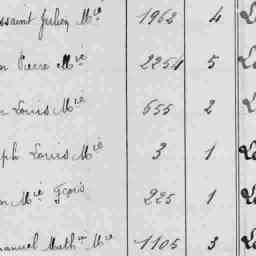 ssaint Julien Mie 1962 4
Pierre Mie 2251 5
Louis Mie 655 2
ph Louis Mie 3 1
Mie Fçois 225 1
manuel Mathin Mie 1105 3